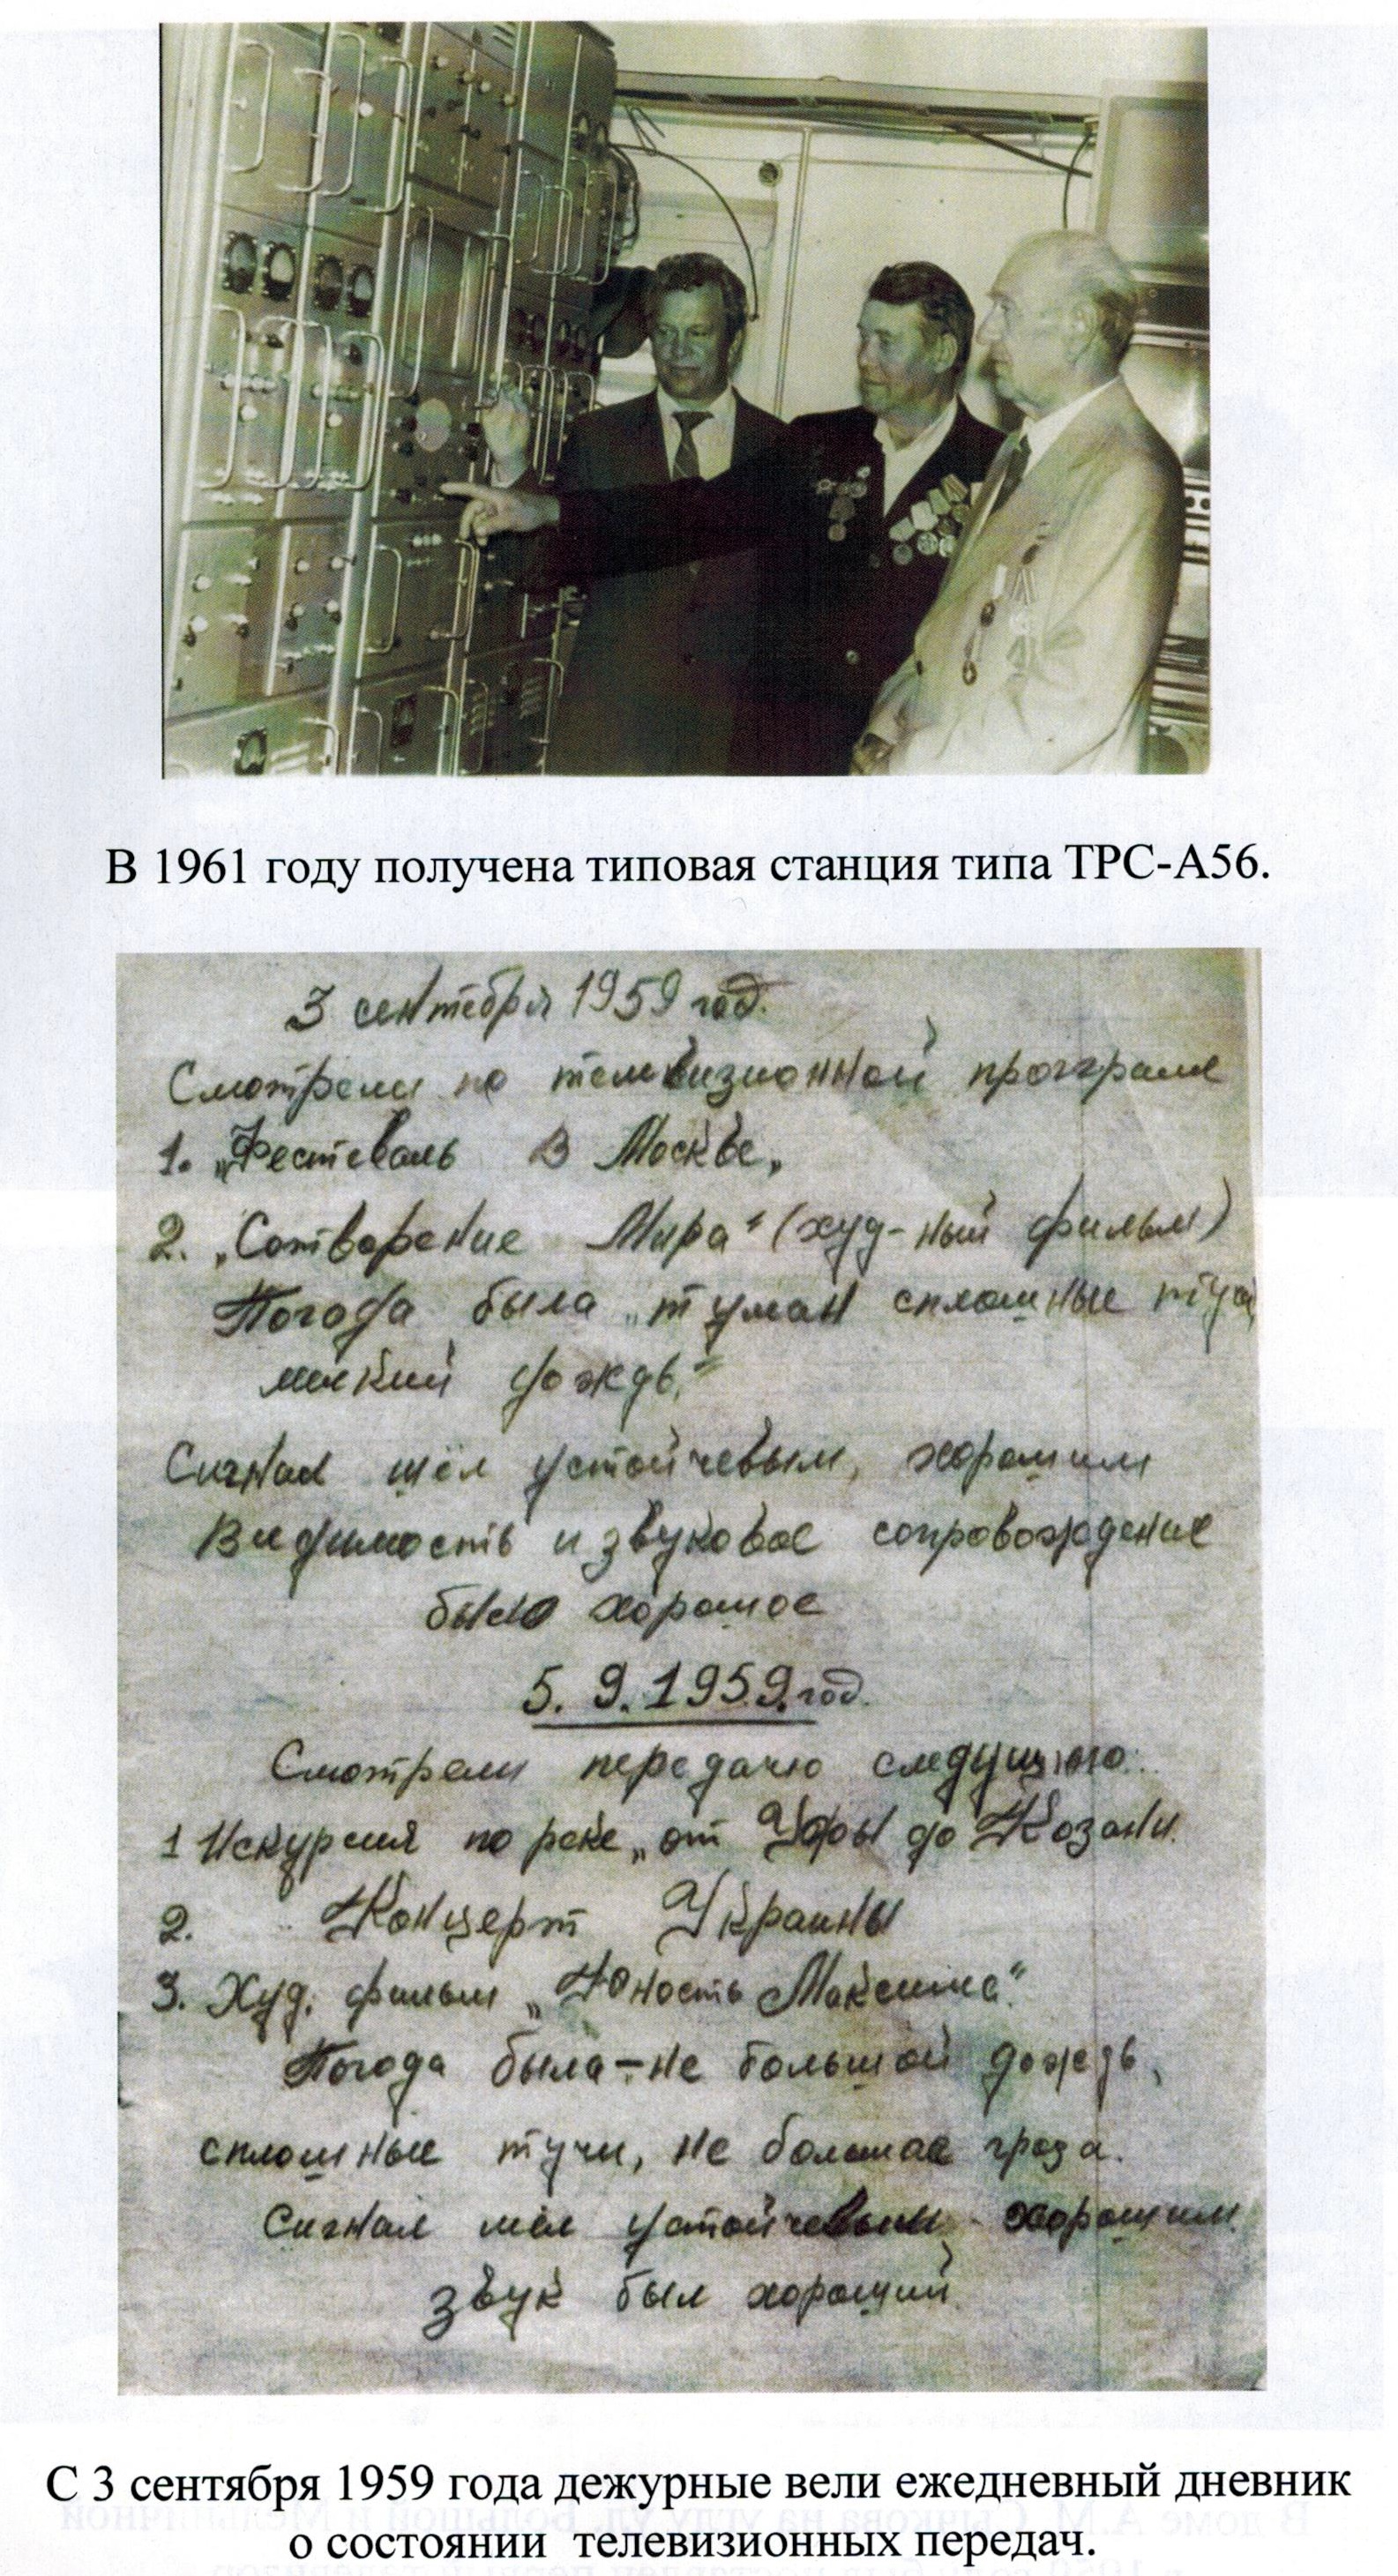 В 1961 году получена типовая станция типа ТРС-А56.
3 сентября 1959 год.
Смотрели по телевизионной програме
1. „Фестеваль В Москве„
2. „Сотворение Мира" (худ-ный фильм)
Погода была „туман сплошные тучи
мелкий дождь."
Сигнал шёл устойчевым, хорошим
Видимость и звуковое сопровождение
было хорошое
5.9.1959.год.
Смотрели передачю следущюю:
1 Искурсия по реке „от Уфы до Козани.
2. Концерт Украины
3. Худ. фильм „Юность Максима".
Погода была – не большой дождь,
сплошные тучи, не большае гроза.
Сигнал шёл устойчевым хорошим.
звук был хороший
С 3 сентября 1959 года дежурные вели ежедневный дневник
о состоянии телевизионных передач.